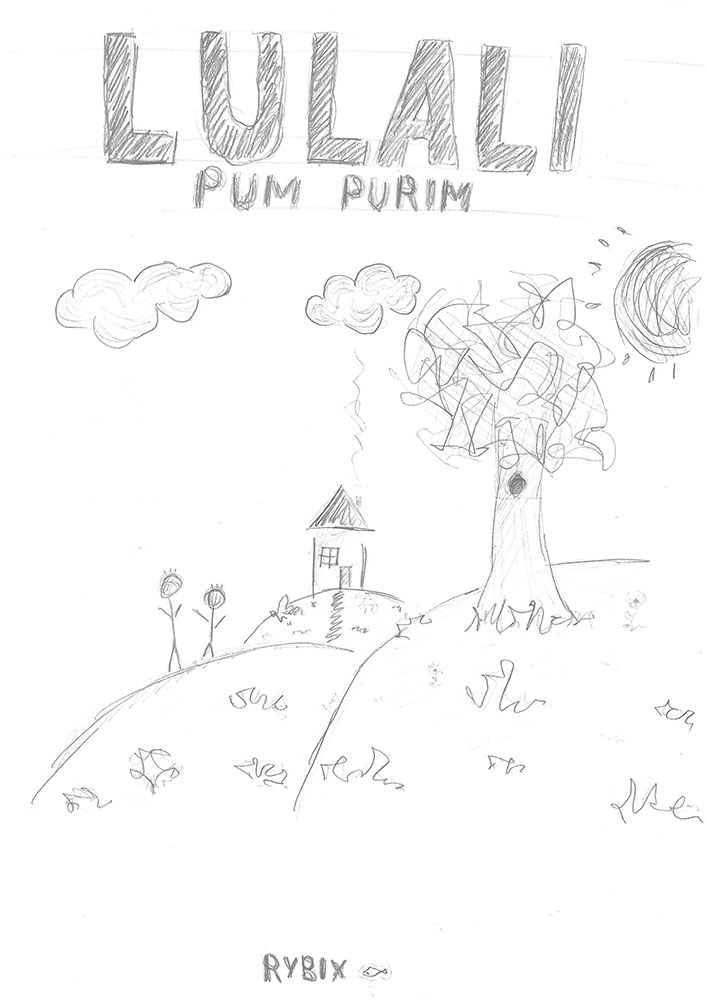 LULALI
PUM PURIM
RYBIX